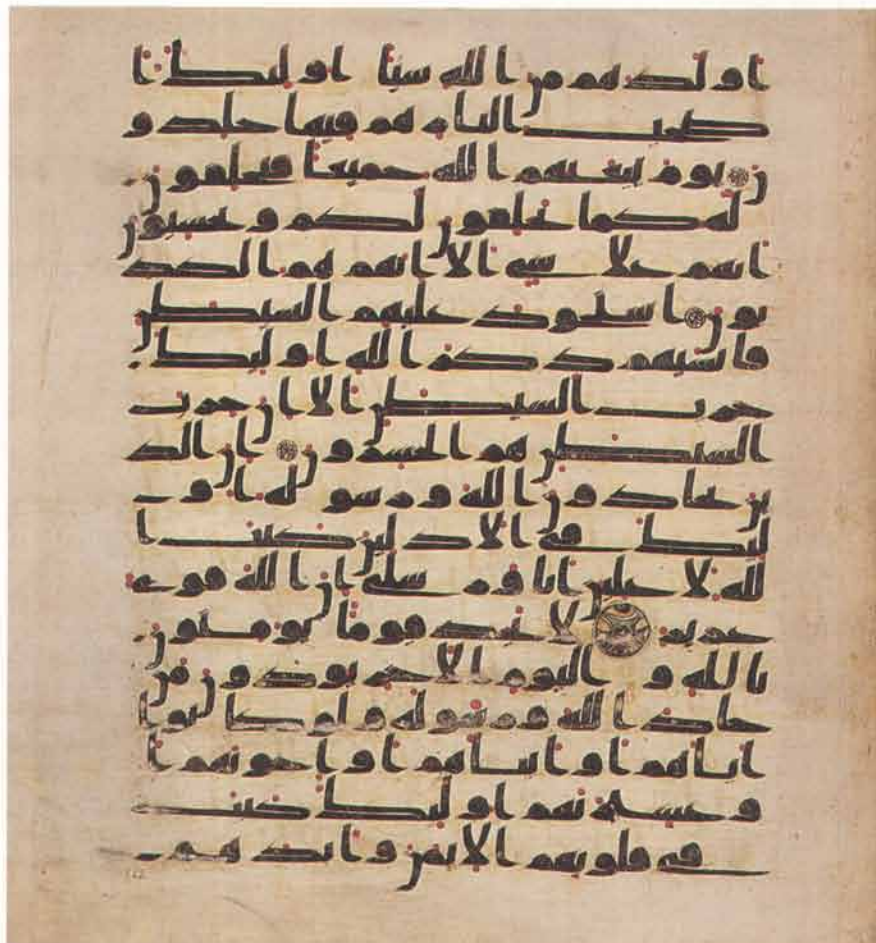 اولدهم من الله شيا اوليك ا
صحب النار هم فيها خلدو
ن يوم يبعثهم الله جميعا فيحلفون
له كما يحلفون لكم ويحسبون
انهم على شي الا انهم هم الكذ
بون استحوذ عليهم الشيطن
فانسيهم ذكر الله اوليك
حزب الشيطن الا ان حزب
الشيطن هم الخسرون ان الذ
ين يحادون الله ورسوله او
ليك في الاذلين كتب ا
لله لاغلبن انا ورسلي ان الله قوي
عزيز لا تجد قوما يومنون
بالله واليوم الاخر يوادون من
حاد الله ورسوله ولو كانوا
اباهم او ابناهم او اخونهم ا
و عشيرتهم اوليك كتب
في قلوبهم الايمن وايدهم